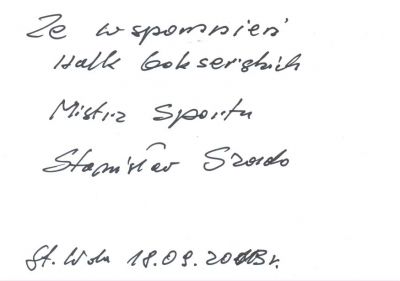 Ze wspomnień
walk bokserskich
Mistrz Sportu
Stanisław Szado
St. Wola 18.09.2013 r.